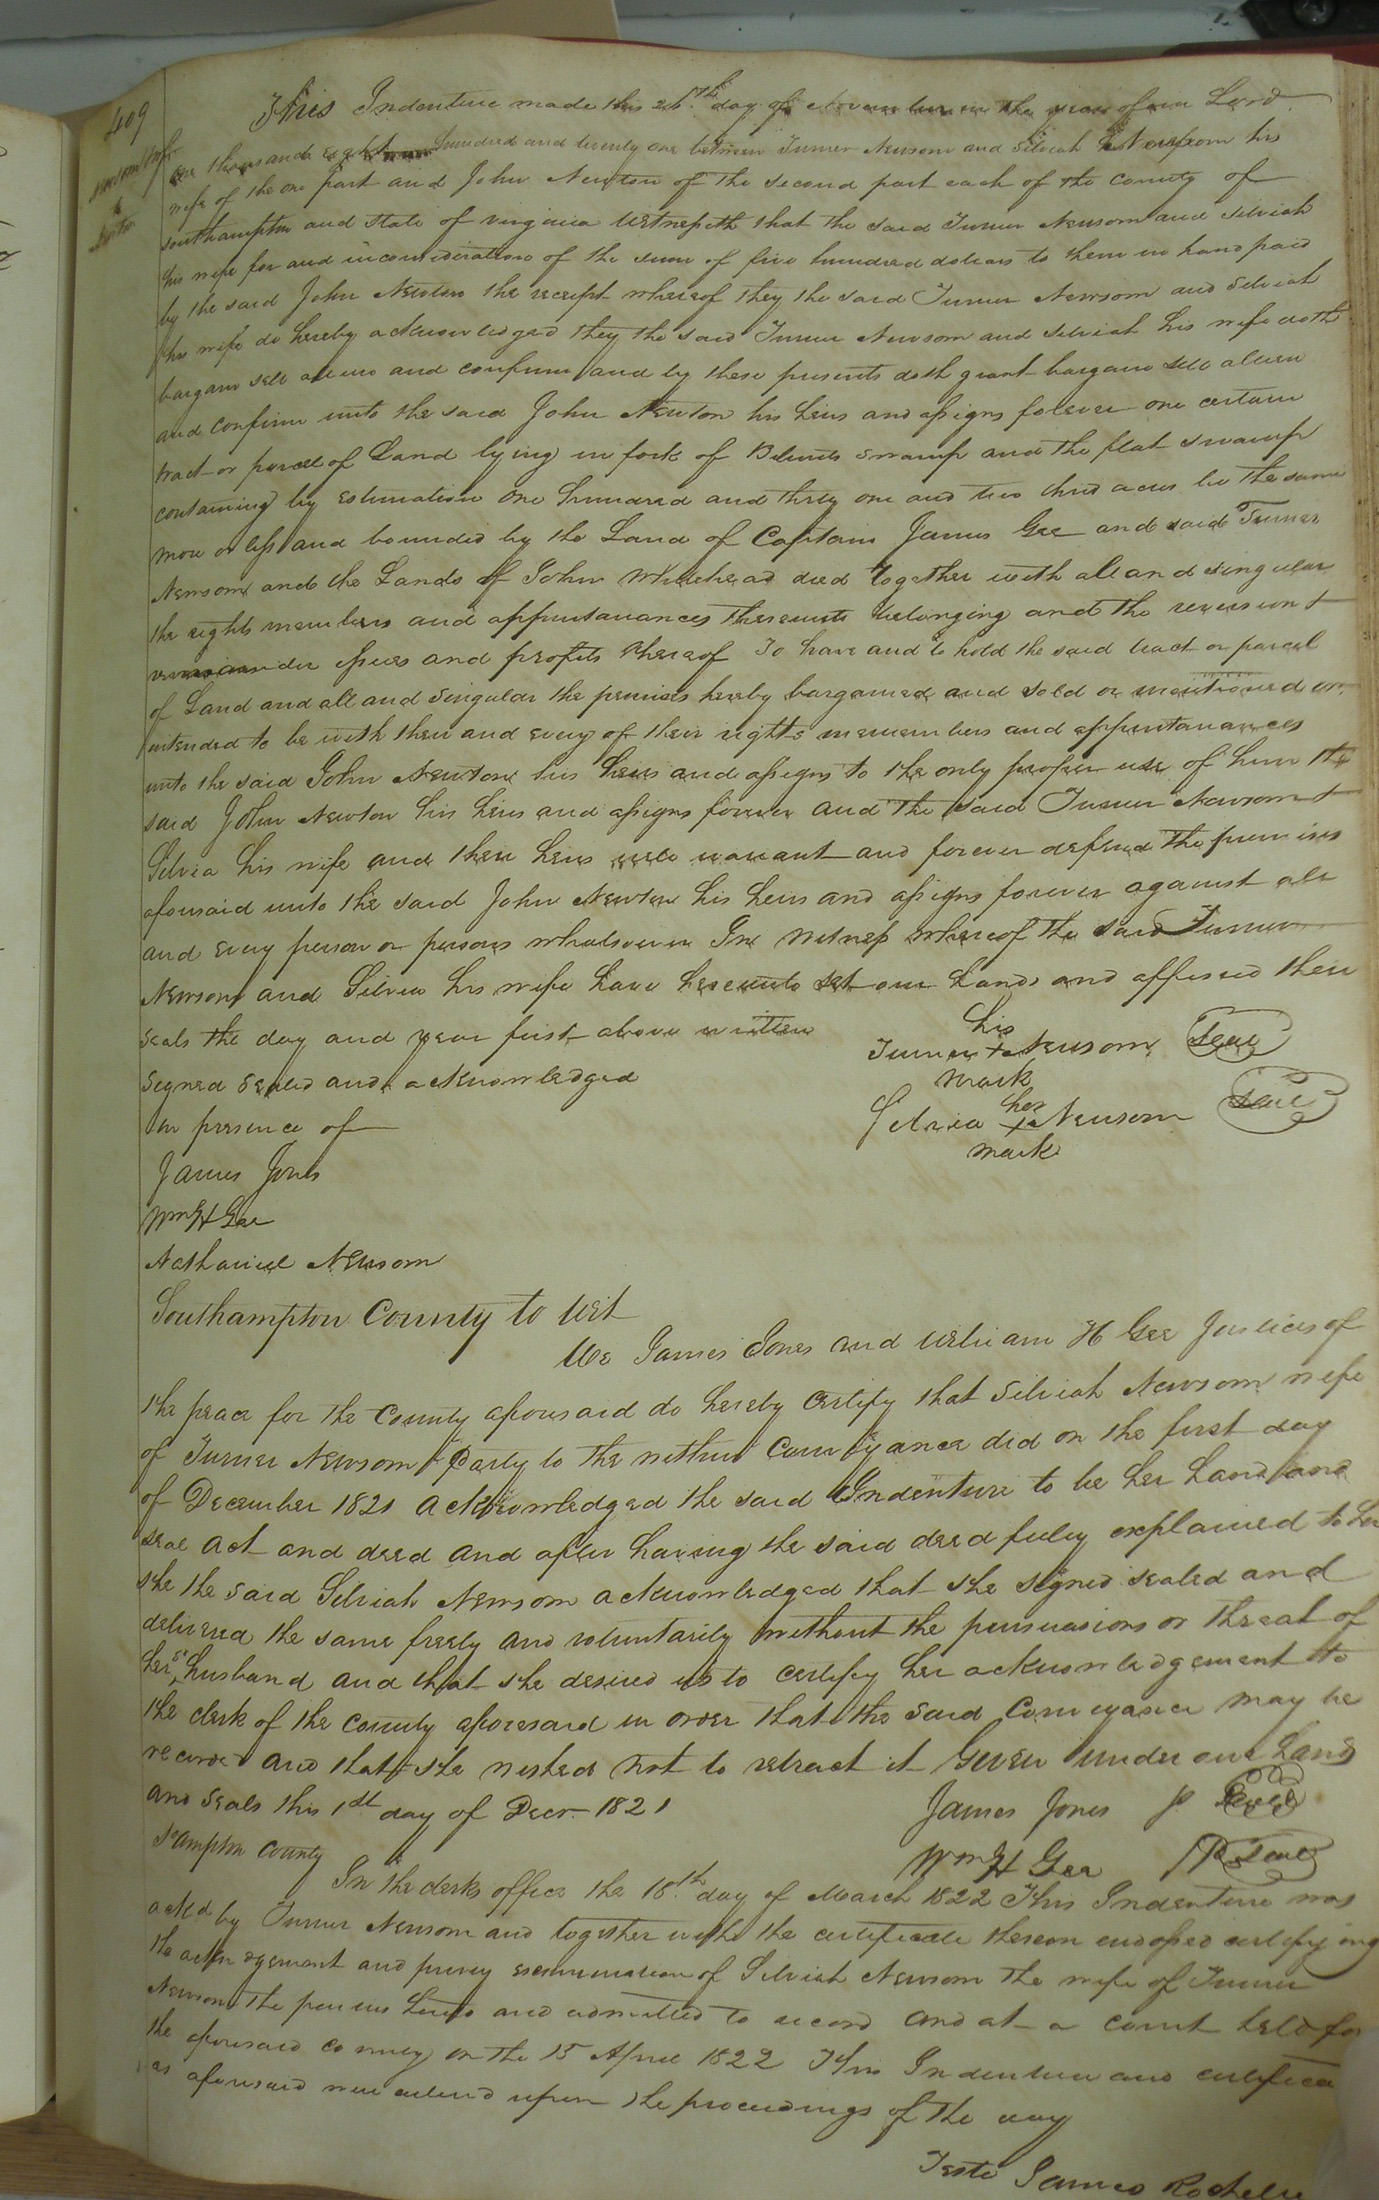 409
Newsom
&
Newton
This Indenture made this 26th day of November in the year of our Lord
one thousand eight hundred and twenty one between Turner Newsom and Silviah Newsom his
wife of the one part and John Newton of the second part each of the County of
Southampton and State of Virginia Witnesseth that the said Turner Newsom and Silviah
his wife for and in consideration of the sum of five hundred dollars to them in hand paid
by the said John Newton the receipt whereof they the said Turner Newsom and Silviah
his wife do hereby acknowledged they the said Turner Newsom and Silviah his wife doth
bargain sell alien and confirm and by these presents doth grant bargain sell alien
and confirm unto the said John Newton his heirs and assigns forever one certain
tract or parcel of Land lying in fork of Blunts Swamp and the flat swamp
containing by estimation one hundred and thirty one and two third acres be the same
more or less and bounded by the Land of Captain James Gee and said Turner
Newsom and the Lands of John Whitehead decd together with all and singular
the rights members and appurtanances thereunto belonging and the reversion &
remainder issues and profits thereof To have and to hold the said tract or parcel
of Land and all and singular the premises hereby bargained and sold or mentioned or
intended to be with them and every of their rights memembers and appurtanances
unto the said John Newton his heirs and assigns to the only proper use of him the
said John Newton his heirs and assigns forever and the said Turner Newsom &
Silvia his wife and their heirs will warrant and forever defend the premises
aforesaid unto the said John Newton his heirs and assigns forever against all
and every person or persons whatsoever In Witness whereof the said Turner
Newsom and Silvia his wife have hereunto set our hands and affixed their
seals the day and year first above written
his
Turner + Newsom Seal
mark
Signed Sealed and acknowledged
her
Silvia + Newsom Seal
mark
in presence of
James Jones
Wm H Gee
Nathaniel Newsom
Southampton County to Wit
We James Jones and William H Gee Justices of
the peace for the County aforesaid do hereby Certify that Silviah Newsom wife
of Turner Newsom Party to the within Conveyance did on the first day
of December 1821 acknowledged the said Indenture to be her hand and
seal act and deed and after having the said deed fully explained to her
she the said Silviah Newsom acknowledged that she signed sealed and
delivered the same freely and voluntarily without the persuasions or threat of
her sd husband and that she desired us to certify her acknowledgement to
the clerk of the County aforesaid in order that the said Conveyance may be
record and that she wished not to retract it Given under our hands
and Seals this 1st day of Decr 1821
James Jones JP Seal
Wm H Gee JP Seal
S°ampton County
In the clerks office the 18th day of March 1822 This Indenture was
ackd by Turner Newsom and together with the certificate thereon endorsed certifying
the acknowgement and privy examination of Silviah Newsom the wife of Turner
Newsom the parties hereto and admitted to record and at a Court held for
the aforesaid county on the 15 April 1822 This Indenture and certificate
as aforesaid were entered upon the proceedings of the day
Teste James Rochelle